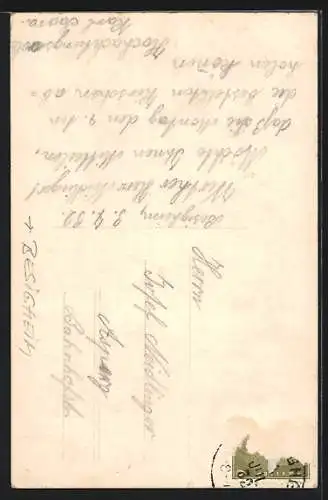 Besigheim, 3.9.32.
Werther Herr Meidinger!
Möchte Ihnen mitteilen,
daß Sie Montag den 9. ten
die bestellten Kirschen ab=
holen können
Hochachtungsvoll
Karl
Herrn
Josef Meidinger
Asperg
Bahnhofstr.
+ BESIGHEIM